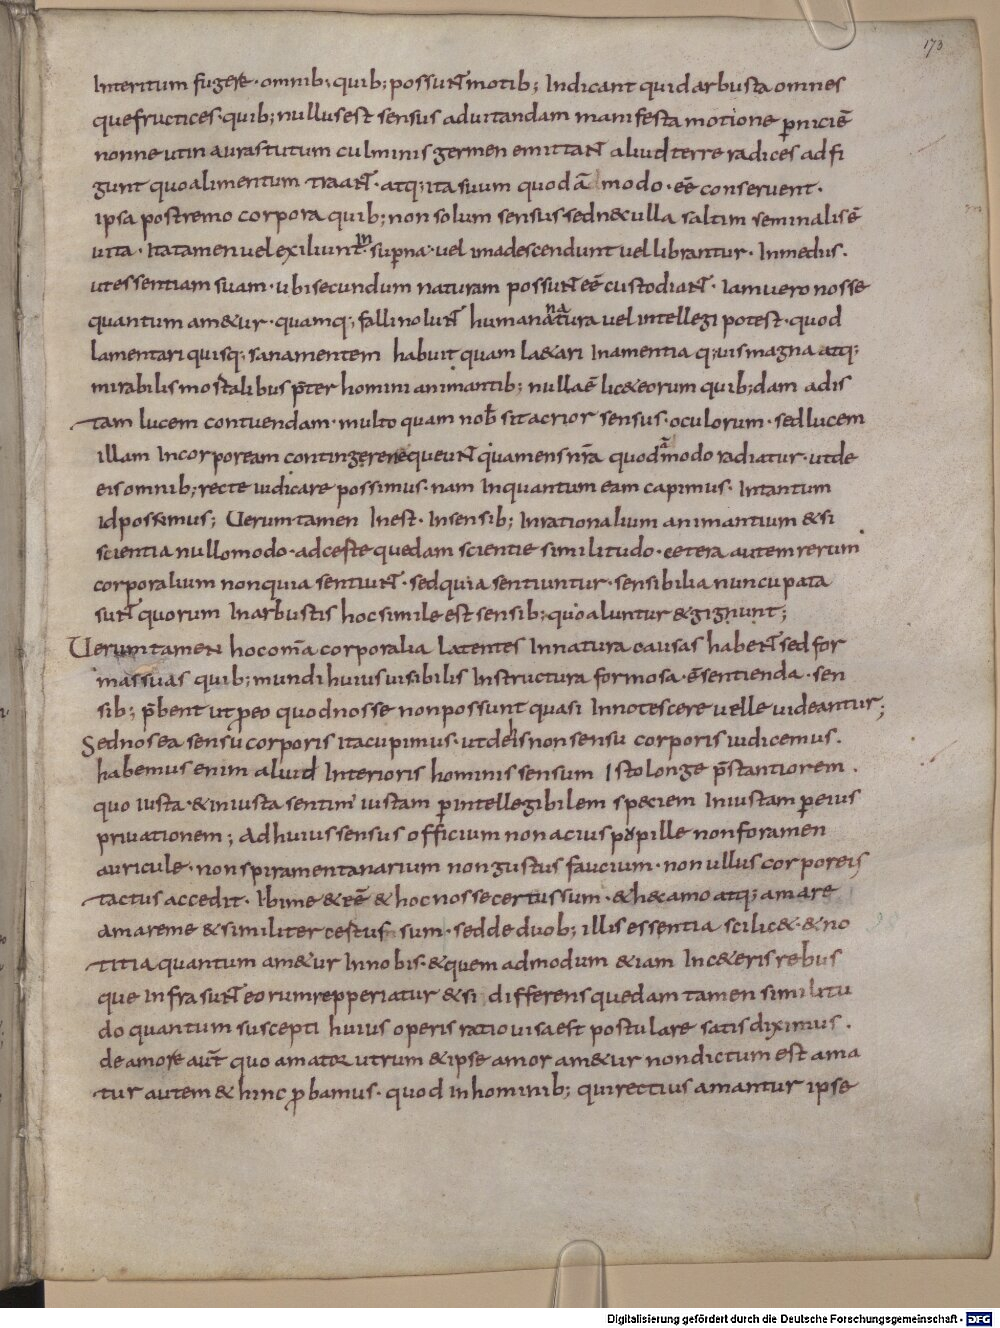 173
Interitum fugere· omnib; quib; possunt motib; Indicant quid arbusta omnes
que fructices· quib; nullus est sensus aduitandam manifesta motione p̱niciē
nonne ut in auras tutum culminis germen emittant aliud terre radices adfi
gunt quo alimentum traant· atq; ita suum quodā modo· eē conseruent·
ipsa postremo corpora quib; non solum sensus sed nec ulla saltim seminalis ē
uita· Ita tamen uel exiliunt in supna· uel imadescendunt uel librantur· In mediis·
ut essentiam suam· ubi secundum naturam possunt eē custodiant· Iam uero nosse
quantum am&ur· quamq; falli nolunt humana natura uel intellegi potest· quod
lamentari quisq; sana mentem habuit quam l&ari In amentia q; uis magna atq;
mirabilis mortalibus p̄ter homini animantib; nulla ē lic& eorum quib;dam ad is
tam lucem contuendam· multo quam nob sit acrior sensus· oculorum· sed lucem
illam Incorpoream contingere nequeunt qua mens nr̄a quodā modo radiatur· ut de
eis omnib; recte iudicare possimus· nam Inquantum eam capimus· Intantum
Id possimus; Uerumtamen Inest· Insensib; Inrationalium animantium &si
scientia nullo modo· ad certe quedam scientie similitudo· cetera autem rerum
corporalium non quia sentiunt· sed quia sentiuntur· sensibilia nuncupata
sunt quorum In arbustis hoc simile est sensib; quo aluntur & gignunt;
Uerumtamen hoc om̄a corporalia latentes In natura causas habent sed for
mas suas quib; mundi huius uisibilis Instructura formosa· ē sentienda· sen
sib; p̄bent ut p̱ eo quod nosse non possunt quasi Innotescere uelle uideantur;
Sed nos ea sensu corporis ita cupimus· ut de his non sensu corporis iudicemus·
habemus enim aliud Interioris hominis sensum Isto longe p̄stantiorem·
quo iusta· & iniusta sentim' iustam p̱ intellegibilem speciem Iniustam p̱ eius
priuationem; ad huius sensus officium non acius pupille non foramen
auricule· non spiramenta narium non gustus faucium· non ullus corporeis
tactus accedit· Ibi me & eē & hoc nosse certus sum· & hec amo atq; amare
amare me & similiter certus sum· sed de duob; illis essentia scilic&· & no
titia quantum am&ur In nobis· & quem admodum &iam In c&eris rebus
que Infra sunt eorum repperiatur &si differens quedam tamen similitu
do quantum suscepti huius operis ratio uisa est postulare satis diximus·
de amore aut̄ quo amator utrum & ipse amor am&ur non dictum est ama
tur autem & hinc p̱bamus· quod in hominib; qui rectius amantur ipse
Digitalisierung gefördert durch die Deutsche Forschungsgemeinschaft - DFG